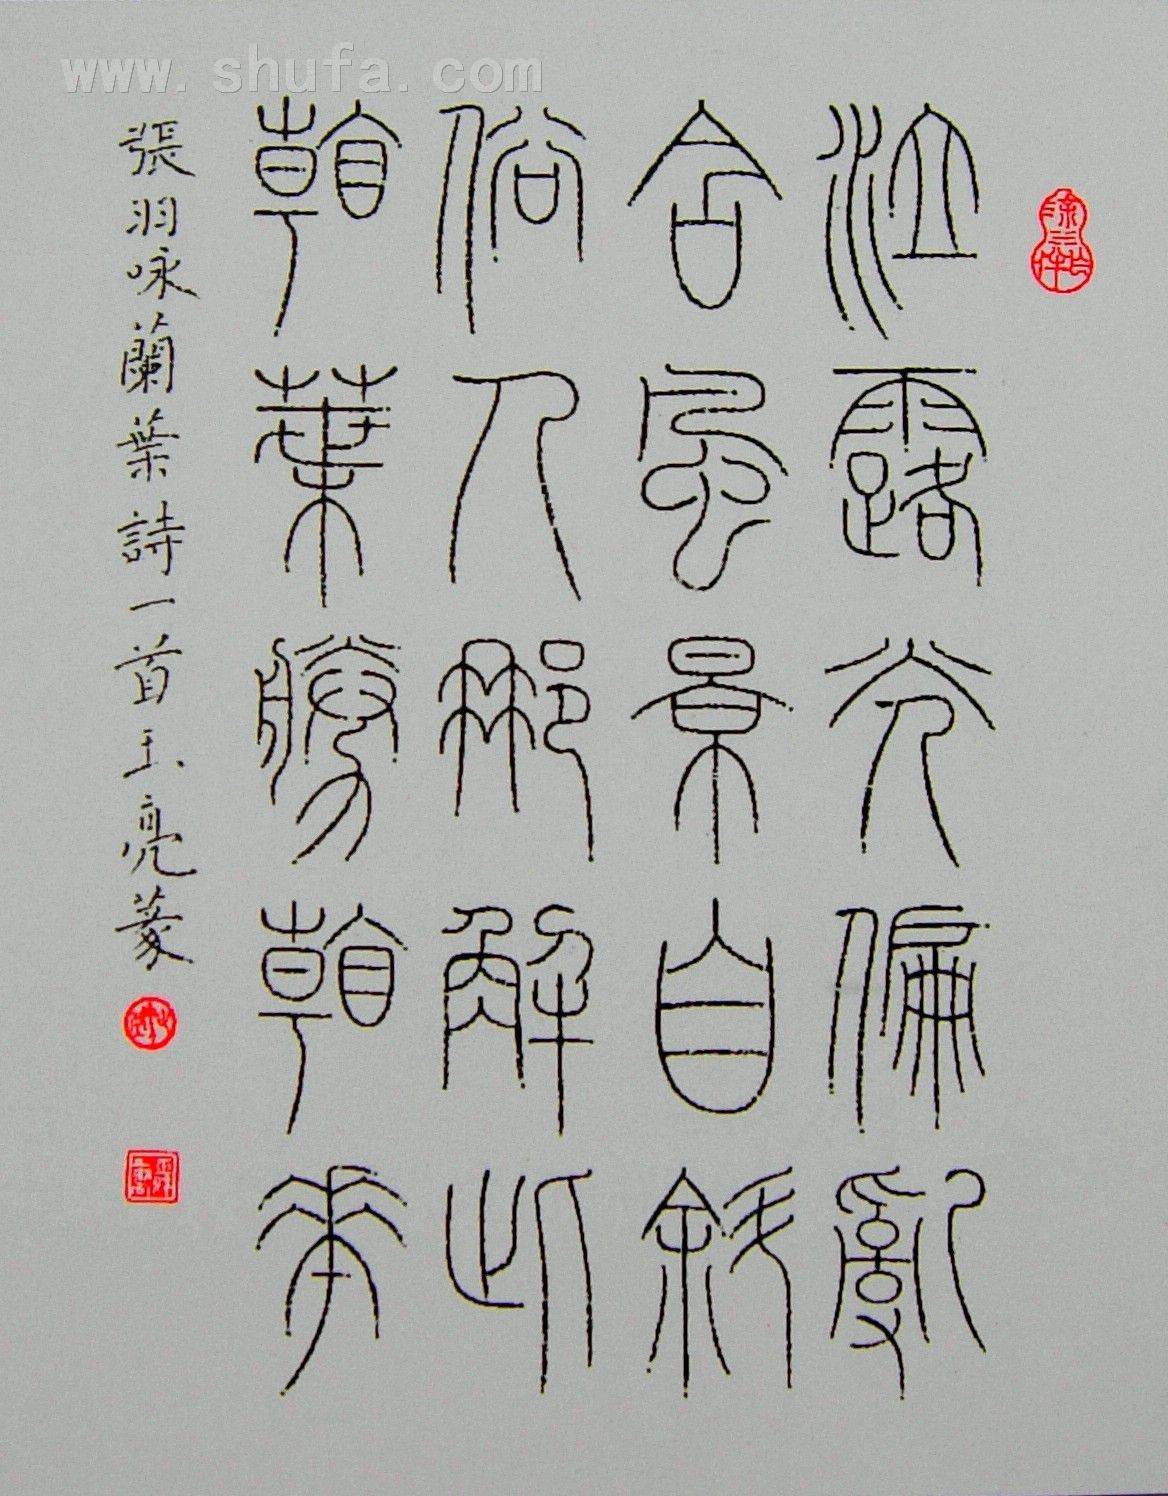 www.shufa.com
泣露光偏亂
含風景自斜
俗人那解此
看葉勝看花
張羽咏蘭葉詩一首玉亮篆